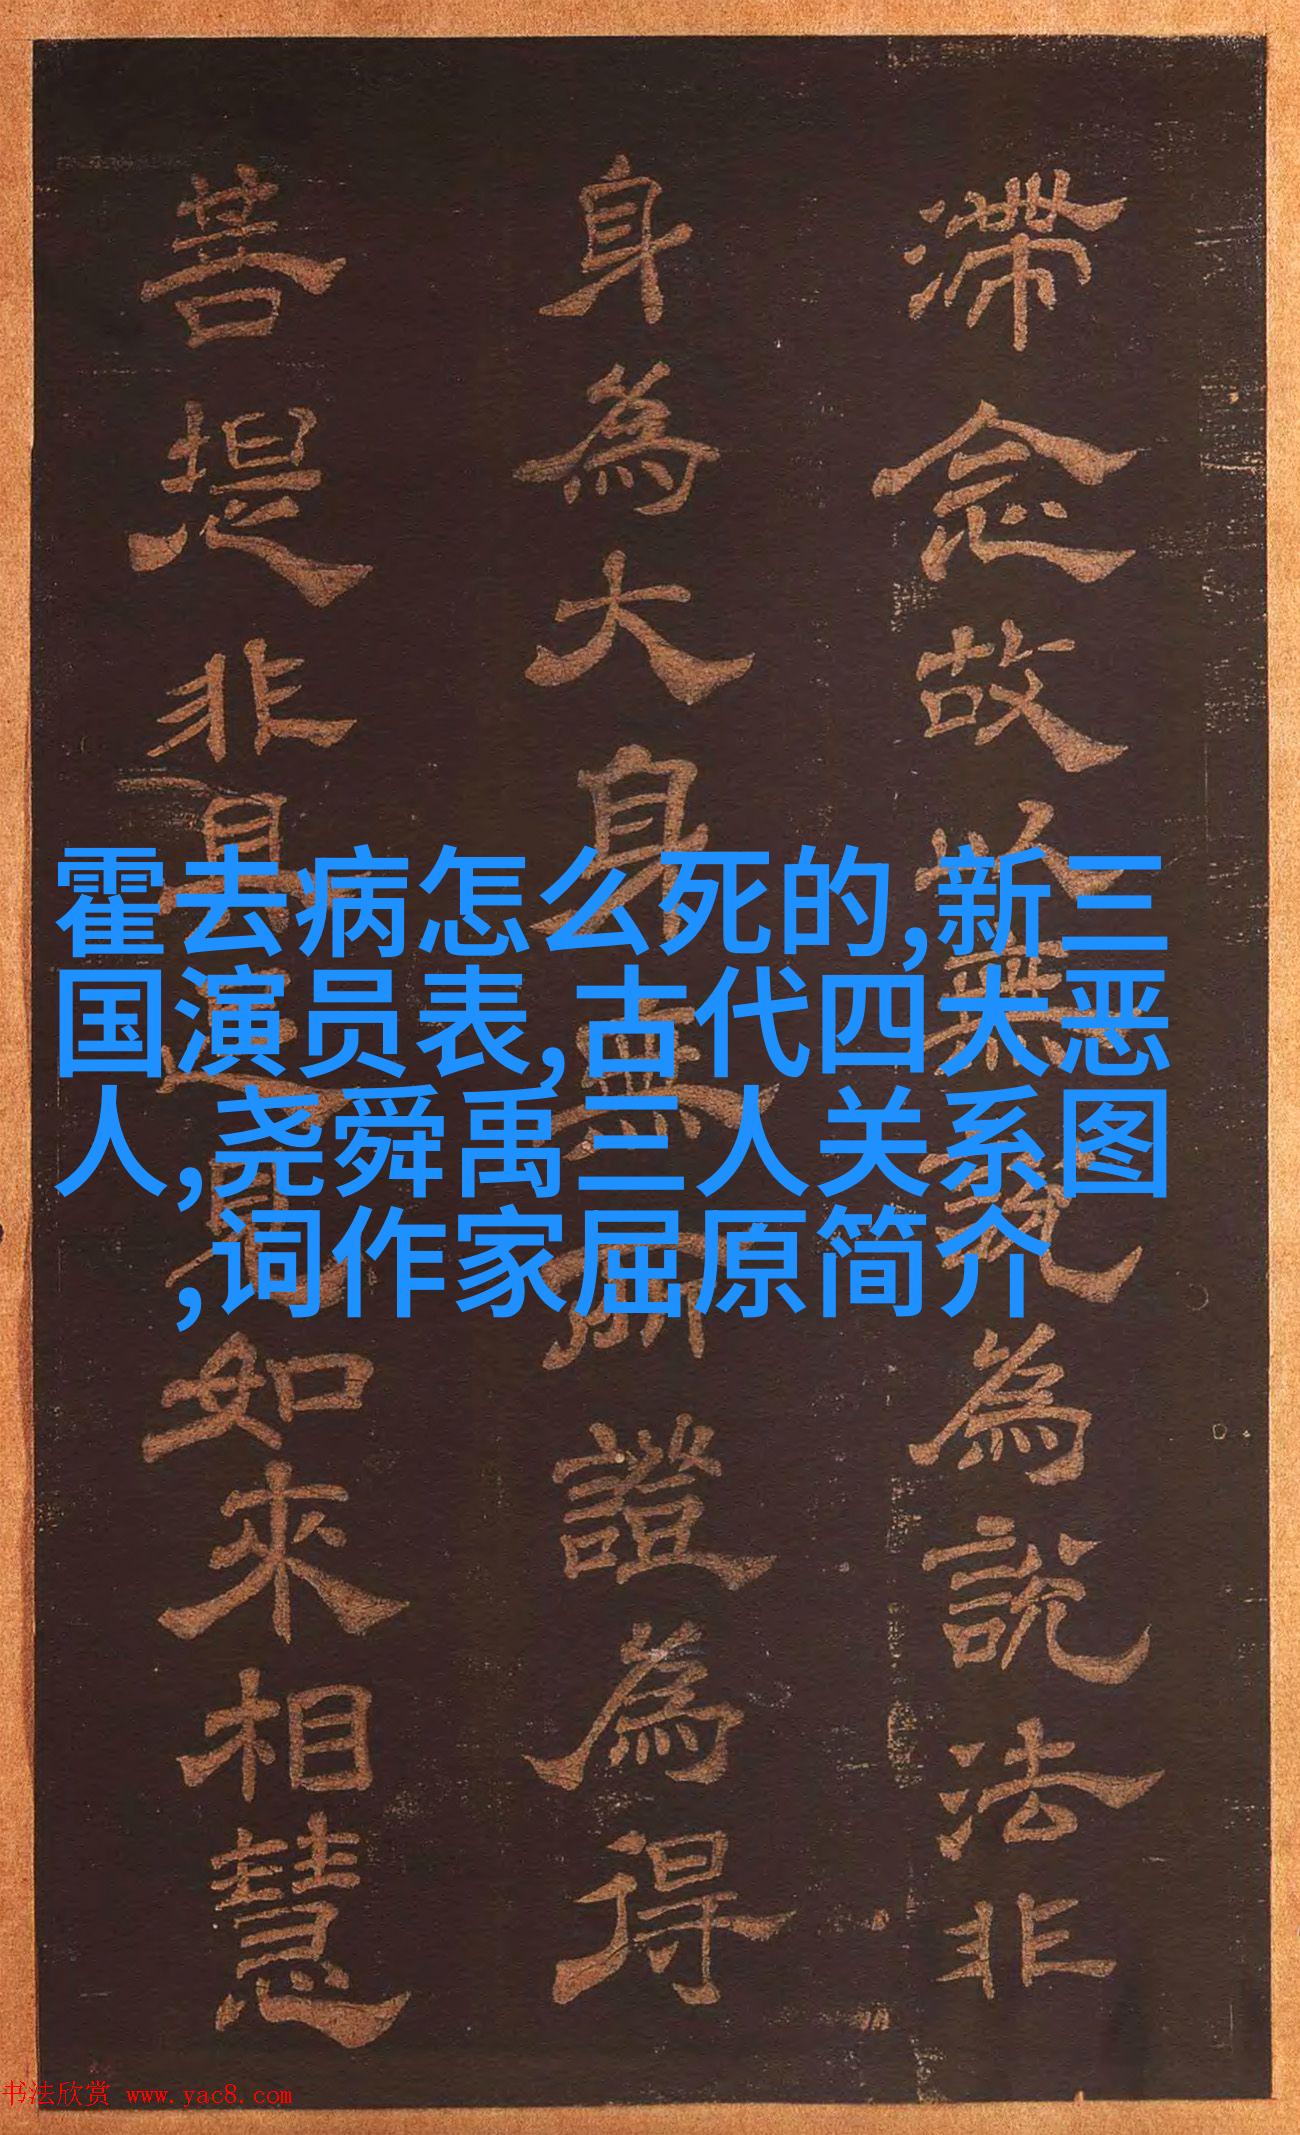 滞念故以無説為說法非
身為大身無所證為得
菩提非具足見如來相慧
霍去病怎么死的,新三
国演员表,古代四大恶
人,尧舜禹三人关系图
,词作家屈原简介
书法欣赏 www.yac8.com